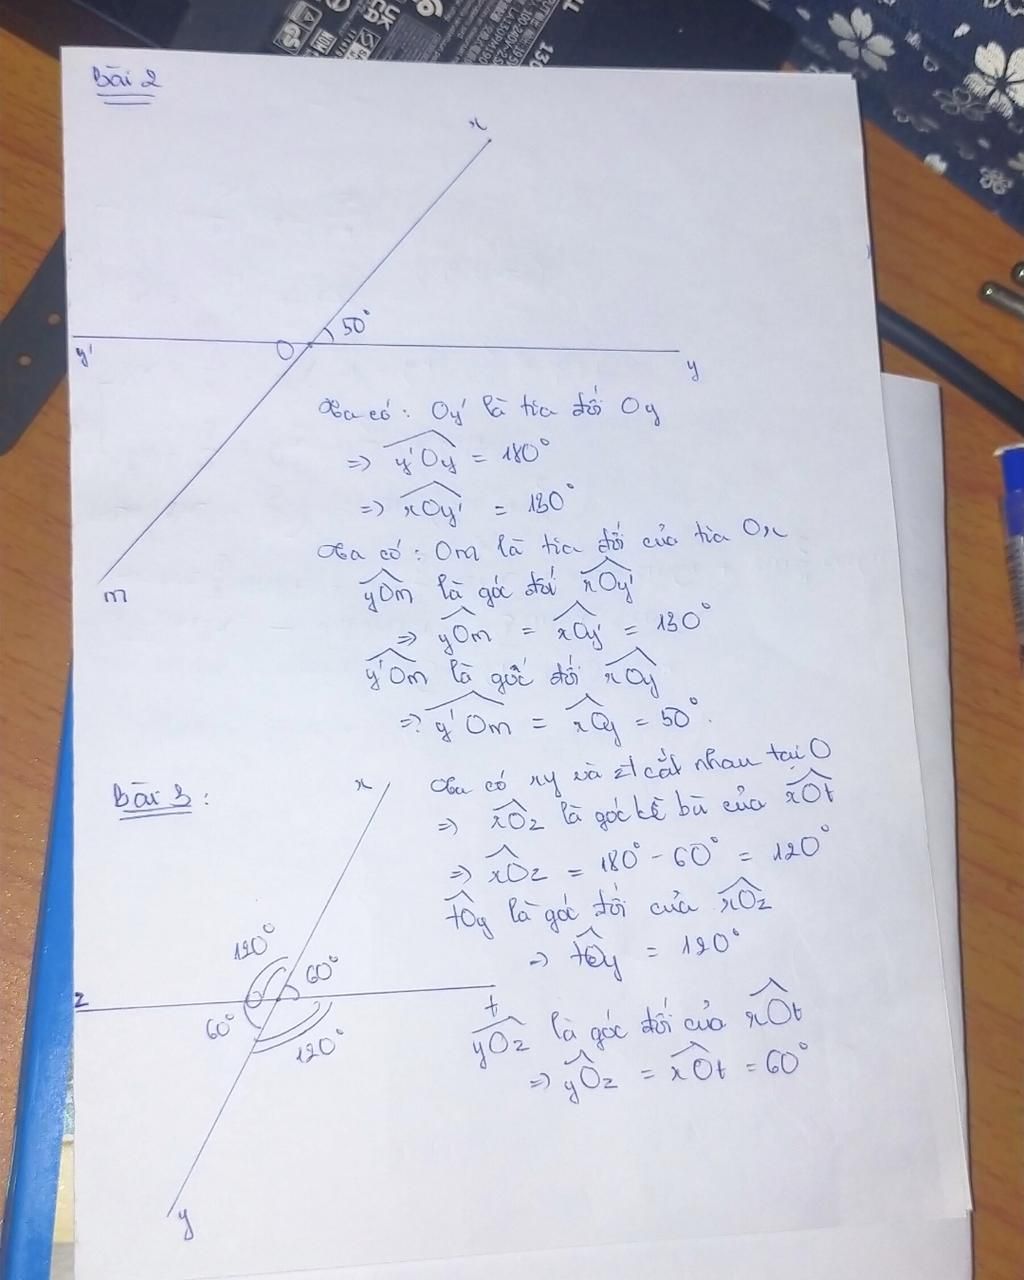 Bài 2
x
50°
O
y'
y
m
Ta có: Oy' là tia đối Oy
=> y'Oy = 180°
=> xOy' = 130°
Ta có: Om là tia đối của tia Ox
yOm là góc đối xOy'
=> yOm = xOy' = 130°
y'Om là góc đối xOy
=> y'Om = xOy = 50°.
Bài 3:
x
120°
60°
z
O
t
60°
120°
y
Ta có xy và zt cắt nhau tại O
=> xOz là góc kề bù của xOt
=> xOz = 180° - 60° = 120°
tOy là góc đối của xOz
=> tOy = 120°
yOz là góc đối của xOt
=> yOz = xOt = 60°